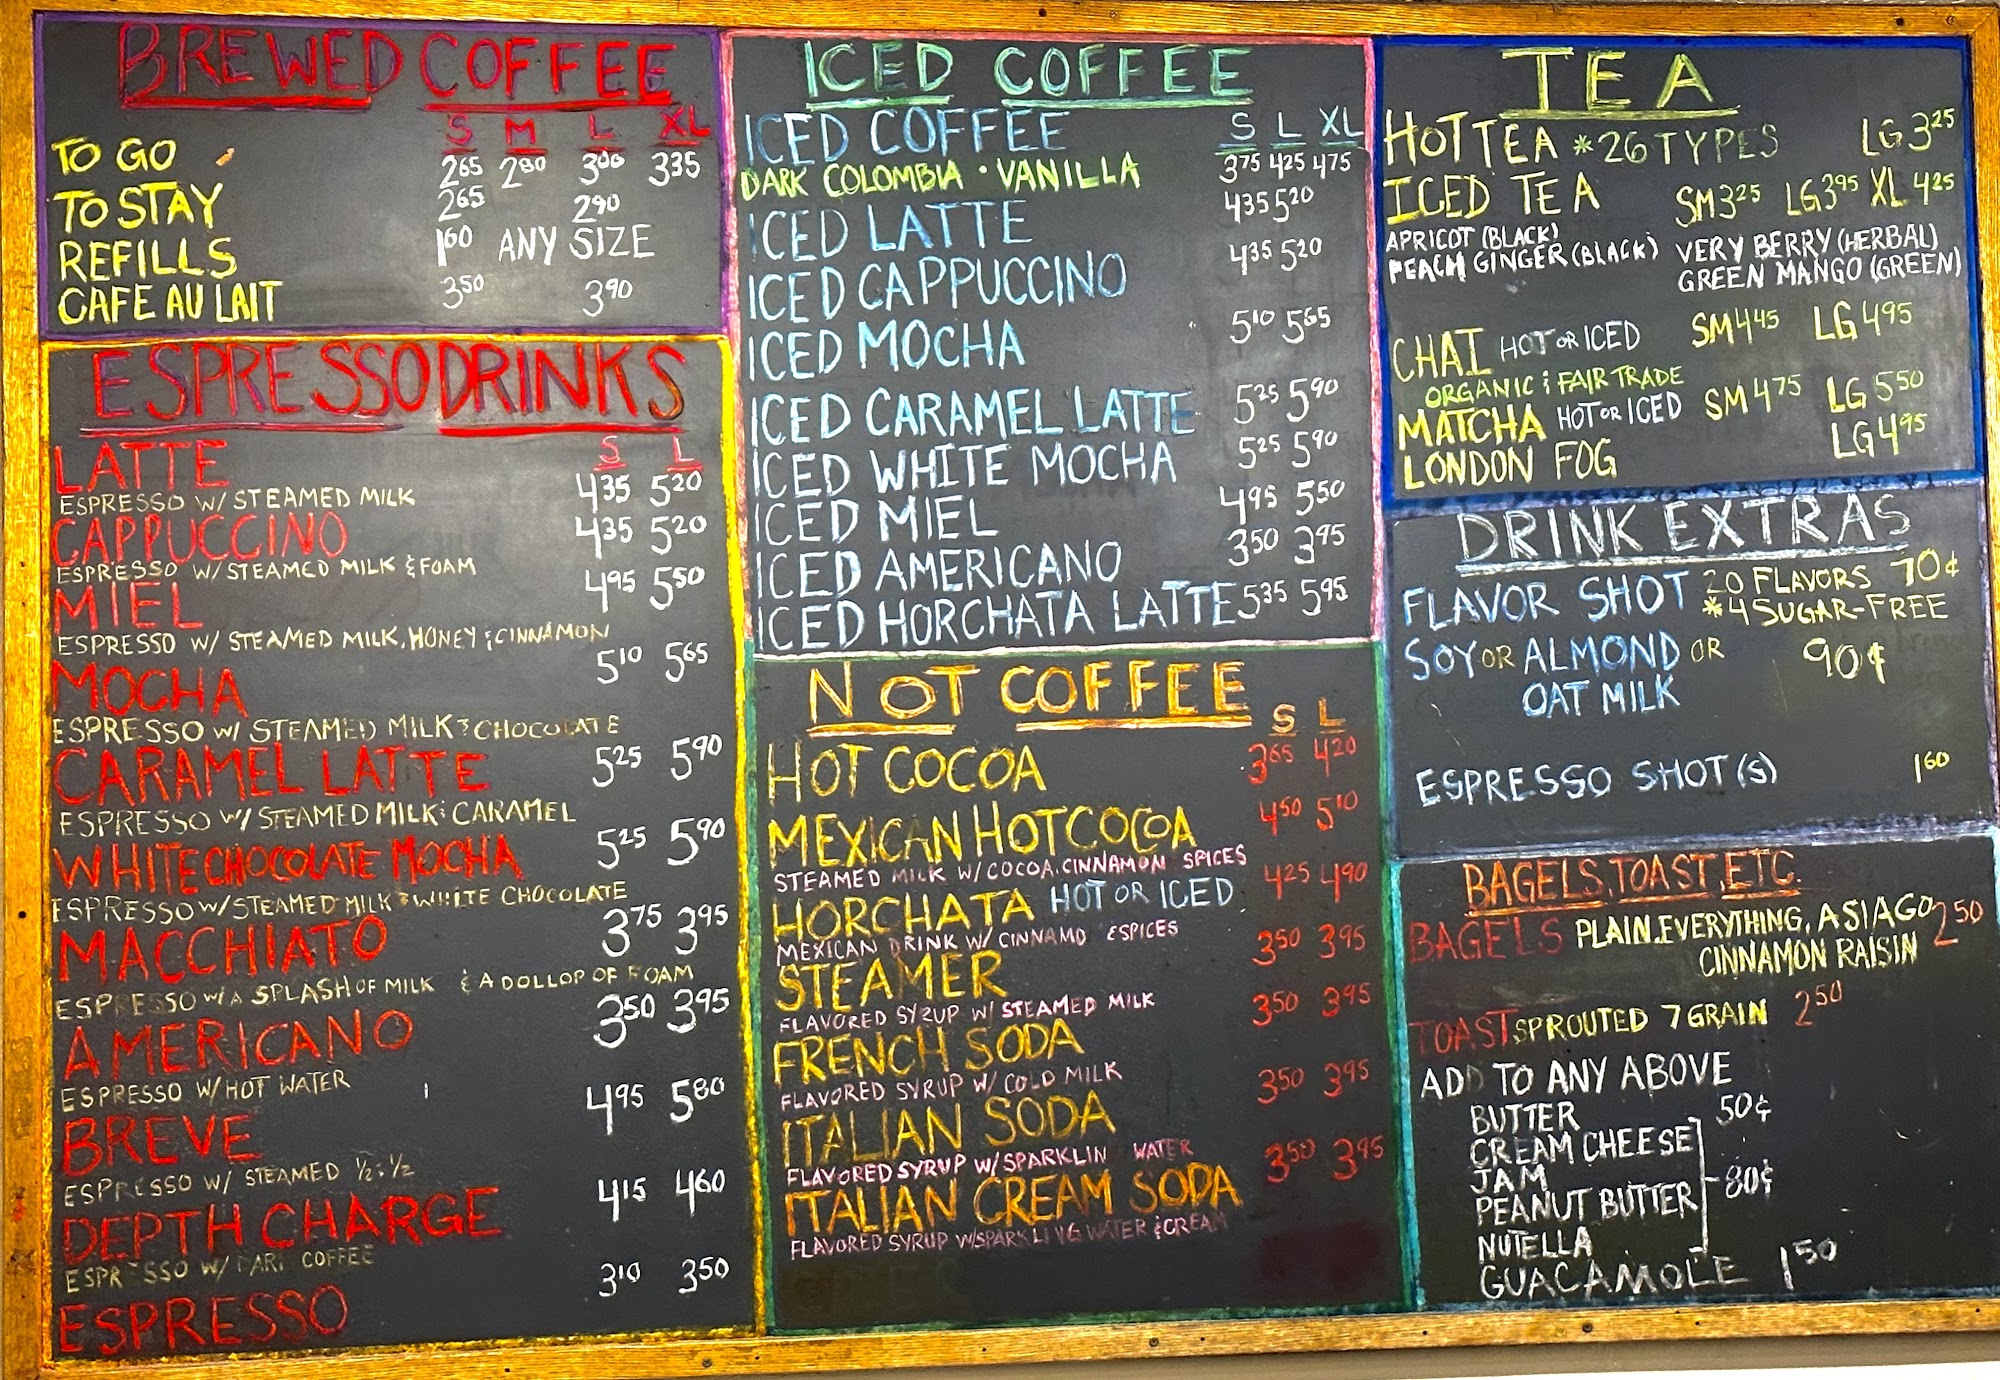 BREWED COFFEE
S M L XL
TO GO 2.65 2.80 3.00 3.35
TO STAY 2.65 2.90
REFILLS 1.60 ANY SIZE
CAFE AU LAIT 3.50 3.90
ESPRESSO DRINKS
S L
LATTE 4.35 5.20
ESPRESSO W/ STEAMED MILK
CAPPUCCINO 4.35 5.20
ESPRESSO W/ STEAMED MILK & FOAM
MIEL 4.95 5.50
ESPRESSO W/ STEAMED MILK, HONEY & CINNAMON
MOCHA 5.10 5.65
ESPRESSO W/ STEAMED MILK & CHOCOLATE
CARAMEL LATTE 5.25 5.90
ESPRESSO W/ STEAMED MILK & CARAMEL
WHITE CHOCOLATE MOCHA 5.25 5.90
ESPRESSO W/ STEAMED MILK & WHITE CHOCOLATE
MACCHIATO 3.75 3.95
ESPRESSO W/ A SPLASH OF MILK & A DOLLOP OF FOAM
AMERICANO 3.50 3.95
ESPRESSO W/ HOT WATER
BREVE 4.95 5.80
ESPRESSO W/ STEAMED ½ & ½
DEPTH CHARGE 4.15 4.60
ESPRESSO W/ DARK COFFEE
ESPRESSO 3.10 3.50
ICED COFFEE
ICED COFFEE S L XL
DARK COLOMBIA · VANILLA 3.75 4.25 4.75
ICED LATTE 4.35 5.20
ICED CAPPUCCINO 4.35 5.20
ICED MOCHA 5.10 5.65
ICED CARAMEL LATTE 5.25 5.90
ICED WHITE MOCHA 5.25 5.90
ICED MIEL 4.95 5.50
ICED AMERICANO 3.50 3.95
ICED HORCHATA LATTE 5.35 5.95
NOT COFFEE
S L
HOT COCOA 3.65 4.20
MEXICAN HOT COCOA 4.50 5.10
STEAMED MILK W/ COCOA, CINNAMON SPICES
HORCHATA HOT OR ICED 4.25 4.90
MEXICAN DRINK W/ CINNAMO & SPICES
STEAMER 3.50 3.95
FLAVORED SYRUP W/ STEAMED MILK
FRENCH SODA 3.50 3.95
FLAVORED SYRUP W/ COLD MILK
ITALIAN SODA 3.50 3.95
FLAVORED SYRUP W/ SPARKLIN WATER
ITALIAN CREAM SODA 3.50 3.95
FLAVORED SYRUP W/ SPARKLING WATER & CREAM
TEA
HOT TEA *26 TYPES LG 3.25
ICED TEA SM 3.25 LG 3.95 XL 4.25
APRICOT (BLACK) VERY BERRY (HERBAL)
PEACH GINGER (BLACK) GREEN MANGO (GREEN)
CHAI HOT OR ICED SM 4.45 LG 4.95
ORGANIC & FAIR TRADE
MATCHA HOT OR ICED SM 4.75 LG 5.50
LONDON FOG LG 4.95
DRINK EXTRAS
FLAVOR SHOT 20 FLAVORS 70¢
*4 SUGAR-FREE
SOY OR ALMOND OR 90¢
OAT MILK
ESPRESSO SHOT(S) 1.60
BAGELS, TOAST, ETC.
BAGELS PLAIN, EVERYTHING, ASIAGO 2.50
CINNAMON RAISIN
TOAST SPROUTED 7 GRAIN 2.50
ADD TO ANY ABOVE
BUTTER 50¢
CREAM CHEESE
JAM
PEANUT BUTTER 80¢
NUTELLA
GUACAMOLE 1.50